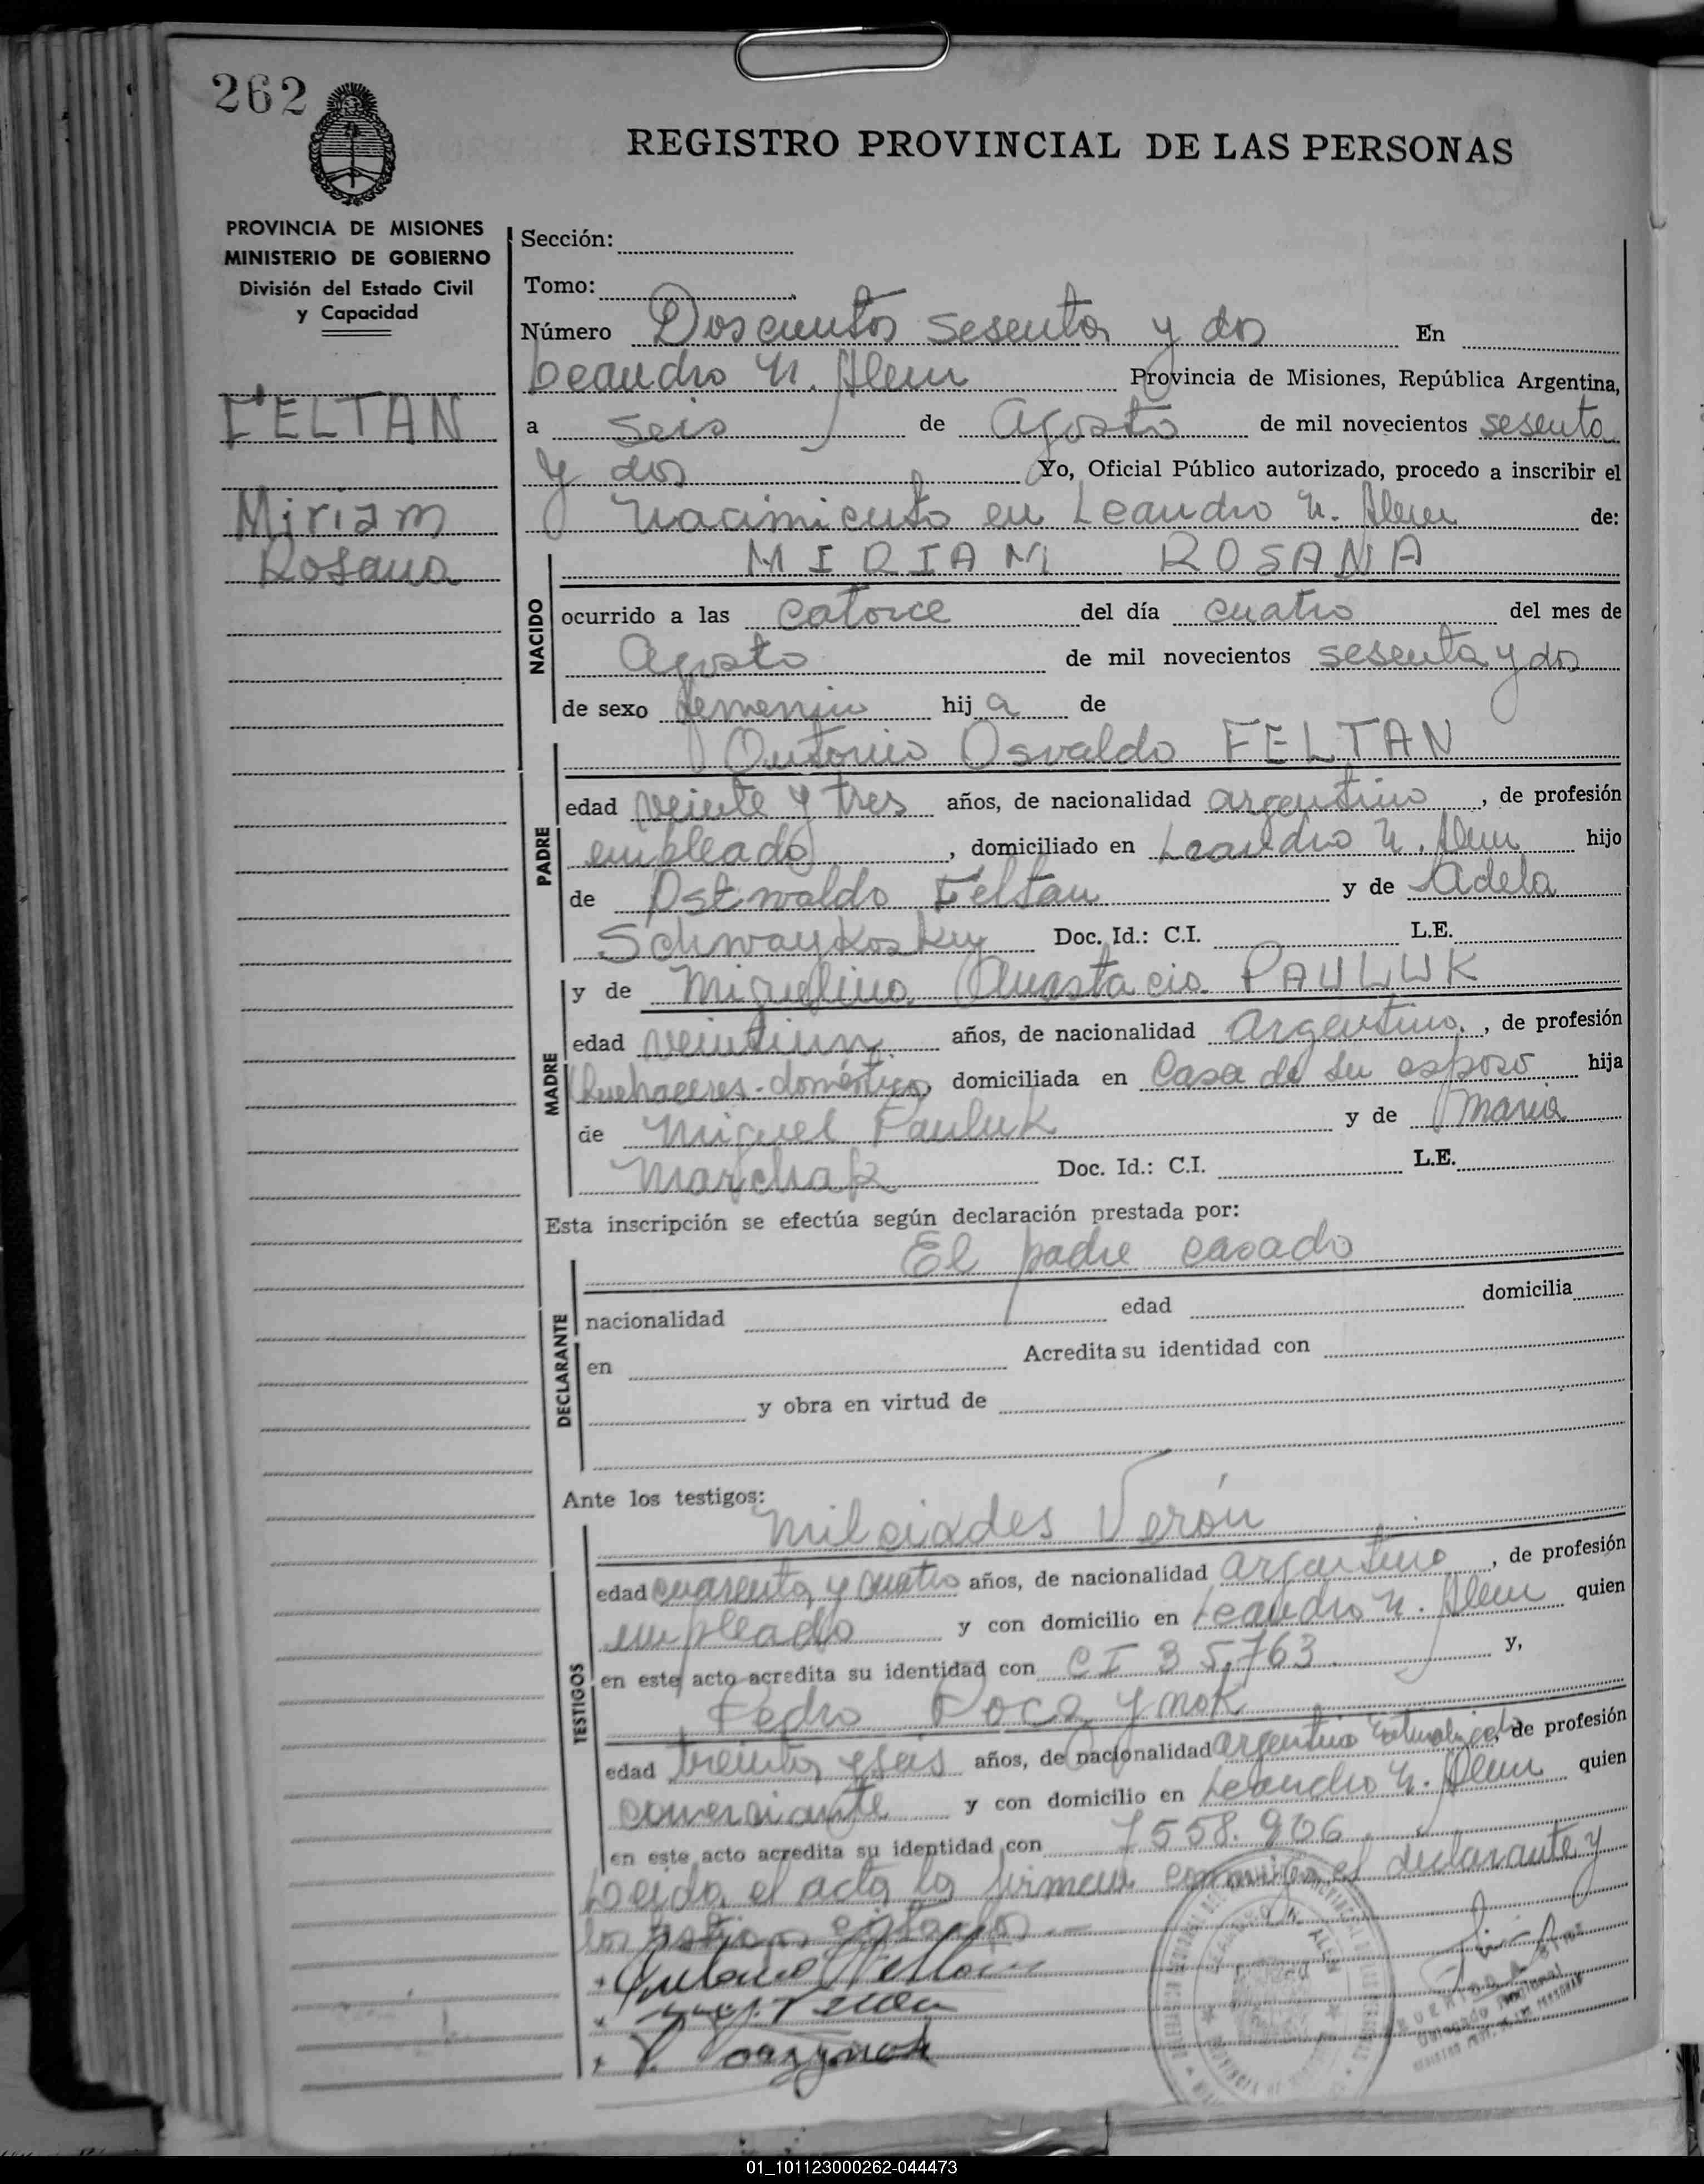 262
REGISTRO PROVINCIAL DE LAS PERSONAS
PROVINCIA DE MISIONES
MINISTERIO DE GOBIERNO
División del Estado Civil
y Capacidad
FELTAN
Miriam
Rosana
Sección:
Tomo:
Número Doscientos sesenta y dos En
Leandro N. Alem Provincia de Misiones, República Argentina,
a seis de Agosto de mil novecientos sesenta
y dos Yo, Oficial Público autorizado, procedo a inscribir el
nacimiento en Leandro N. Alem de:
NACIDO
MIRIAM ROSANA
ocurrido a las catorce del día cuatro del mes de
Agosto de mil novecientos sesenta y dos
de sexo femenino hij a de
PADRE
Antonio Osvaldo FELTAN
edad veinte y tres años, de nacionalidad argentino, de profesión
empleado, domiciliado en Leandro N. Alem hijo
de Ostwaldo Feltan y de Adela
Schwaykosky Doc. Id.: C.I. L.E.
MADRE
y de Miguelina Anastacia PAULUK
edad veintiun años, de nacionalidad Argentina, de profesión
Quehaceres-domésticos, domiciliada en Casa de su esposo hija
de Miguel Pauluk y de Maria
Marchak Doc. Id.: C.I. L.E.
Esta inscripción se efectúa según declaración prestada por:
DECLARANTE
El padre casado
nacionalidad edad domicilia
en Acredita su identidad con
y obra en virtud de
Ante los testigos:
TESTIGOS
Milciades Verón
edad cuarenta y cuatro años, de nacionalidad argentino, de profesión
empleado y con domicilio en Leandro N. Alem quien
en este acto acredita su identidad con CI 35.763 y,
Pedro Poczynok
edad treinta y seis años, de nacionalidad argentino naturalizado, de profesión
comerciante y con domicilio en Leandro N. Alem quien
en este acto acredita su identidad con 7558.906
Leida el acta la firman conmigo el declarante y
los testigos citados.—
Antonio Feltan
Verón
P. Poczynok
LEANDRO N. ALEM
01_101123000262-044473